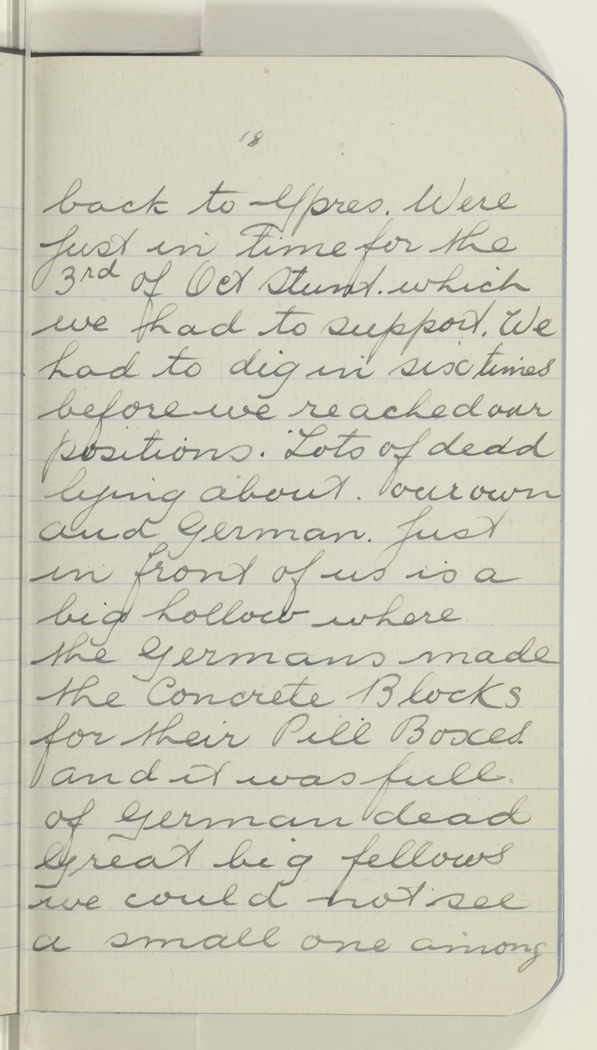 18
back to Ypres. Were
just in time for the
3rd of Oct Stunt. which
we had to support. We
had to dig in six times
before we reached our
positions. Lots of dead
lying about. our own
and German. Just
in front of us is a
big hollow where
the Germans made
the Concrete Blocks
for their Pill Boxes.
and it was full.
of German dead
Great big fellows
we could not see
a small one among